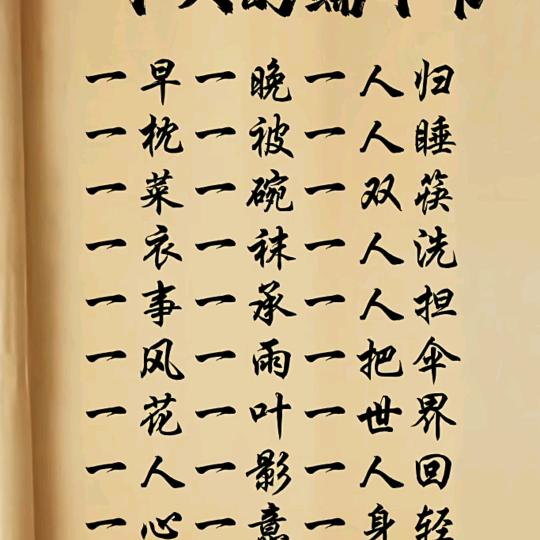 一早一晚一人归
一枕一被一人睡
一菜一碗一双筷
一衣一袜一人洗
一事一承一人担
一风一雨一把伞
一花一叶一世界
一人一影一人回
一心一意一身轻